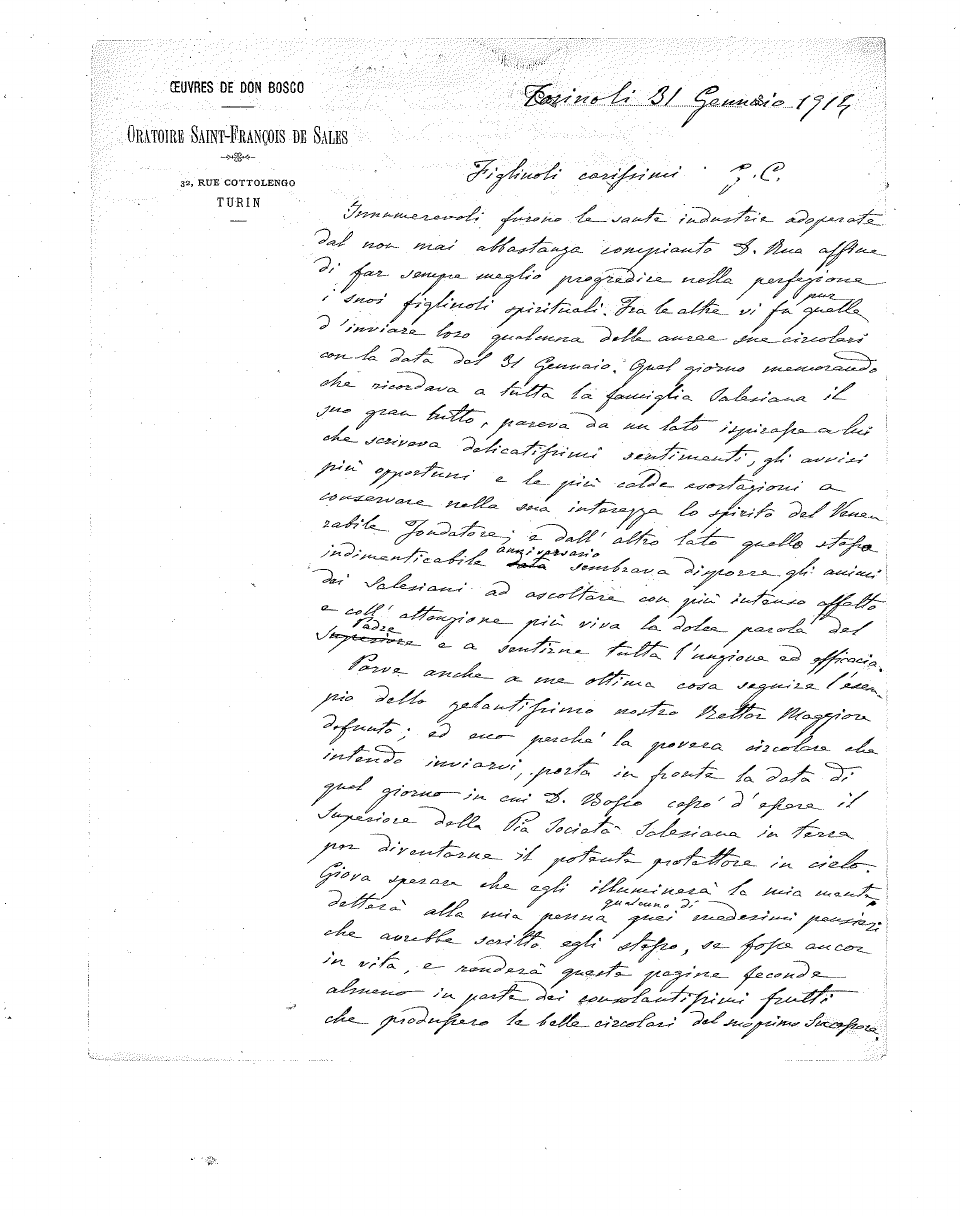 ŒUVRES DE DON BOSCO
ORATOIRE SAINT-FRANÇOIS DE SALES
32, RUE COTTOLENGO
TURIN
31 Gennaio 1914
Figliuoli carissimi G. C.
Innumerevoli furono le sante industrie adoperate
dal non mai abbastanza compianto D. Rua affine
di far sempre meglio progredire nella perfezione
i suoi figliuoli spirituali. Fra le altre vi fu pur quella
d'inviare loro qualcuna delle auree sue circolari
con la data del 31 Gennaio. Quel giorno memorando
che ricordava a tutta la famiglia Salesiana il
suo gran lutto, pareva da un lato ispirasse a lui
che scriveva delicatissimi sentimenti, gli avvisi
più opportuni e le più calde esortazioni a
conservare nella sua interezza lo spirito del Vene
rabile Fondatore; e dall'altro lato quello stesso
indimenticabile data anniversario sembrava disporre gli animi
dei Salesiani ad ascoltare con più intenso affetto
e coll'attenzione più viva la dolce parola del
Superiore Padre e a sentirne tutta l'unzione ed efficacia.
Parve anche a me ottima cosa seguire l'esem
pio dello zelantissimo nostro Rettor Maggiore
defunto; ed ecco perchè la povera circolare che
intendo inviarvi, porta in fronte la data di
quel giorno in cui D. Bosco cessò d'essere il
Superiore della Pia Società Salesiana in terra
per diventarne il potente protettore in cielo.
Giova sperare che egli illuminerà la mia mente
detterà alla mia penna qualcuno di quei medesimi pensieri
che avrebbe scritto egli stesso, se fosse ancor
in vita, e renderà queste pagine feconde
almeno in parte dei consolantissimi frutti
che produssero le belle circolari del suo primo Successore.